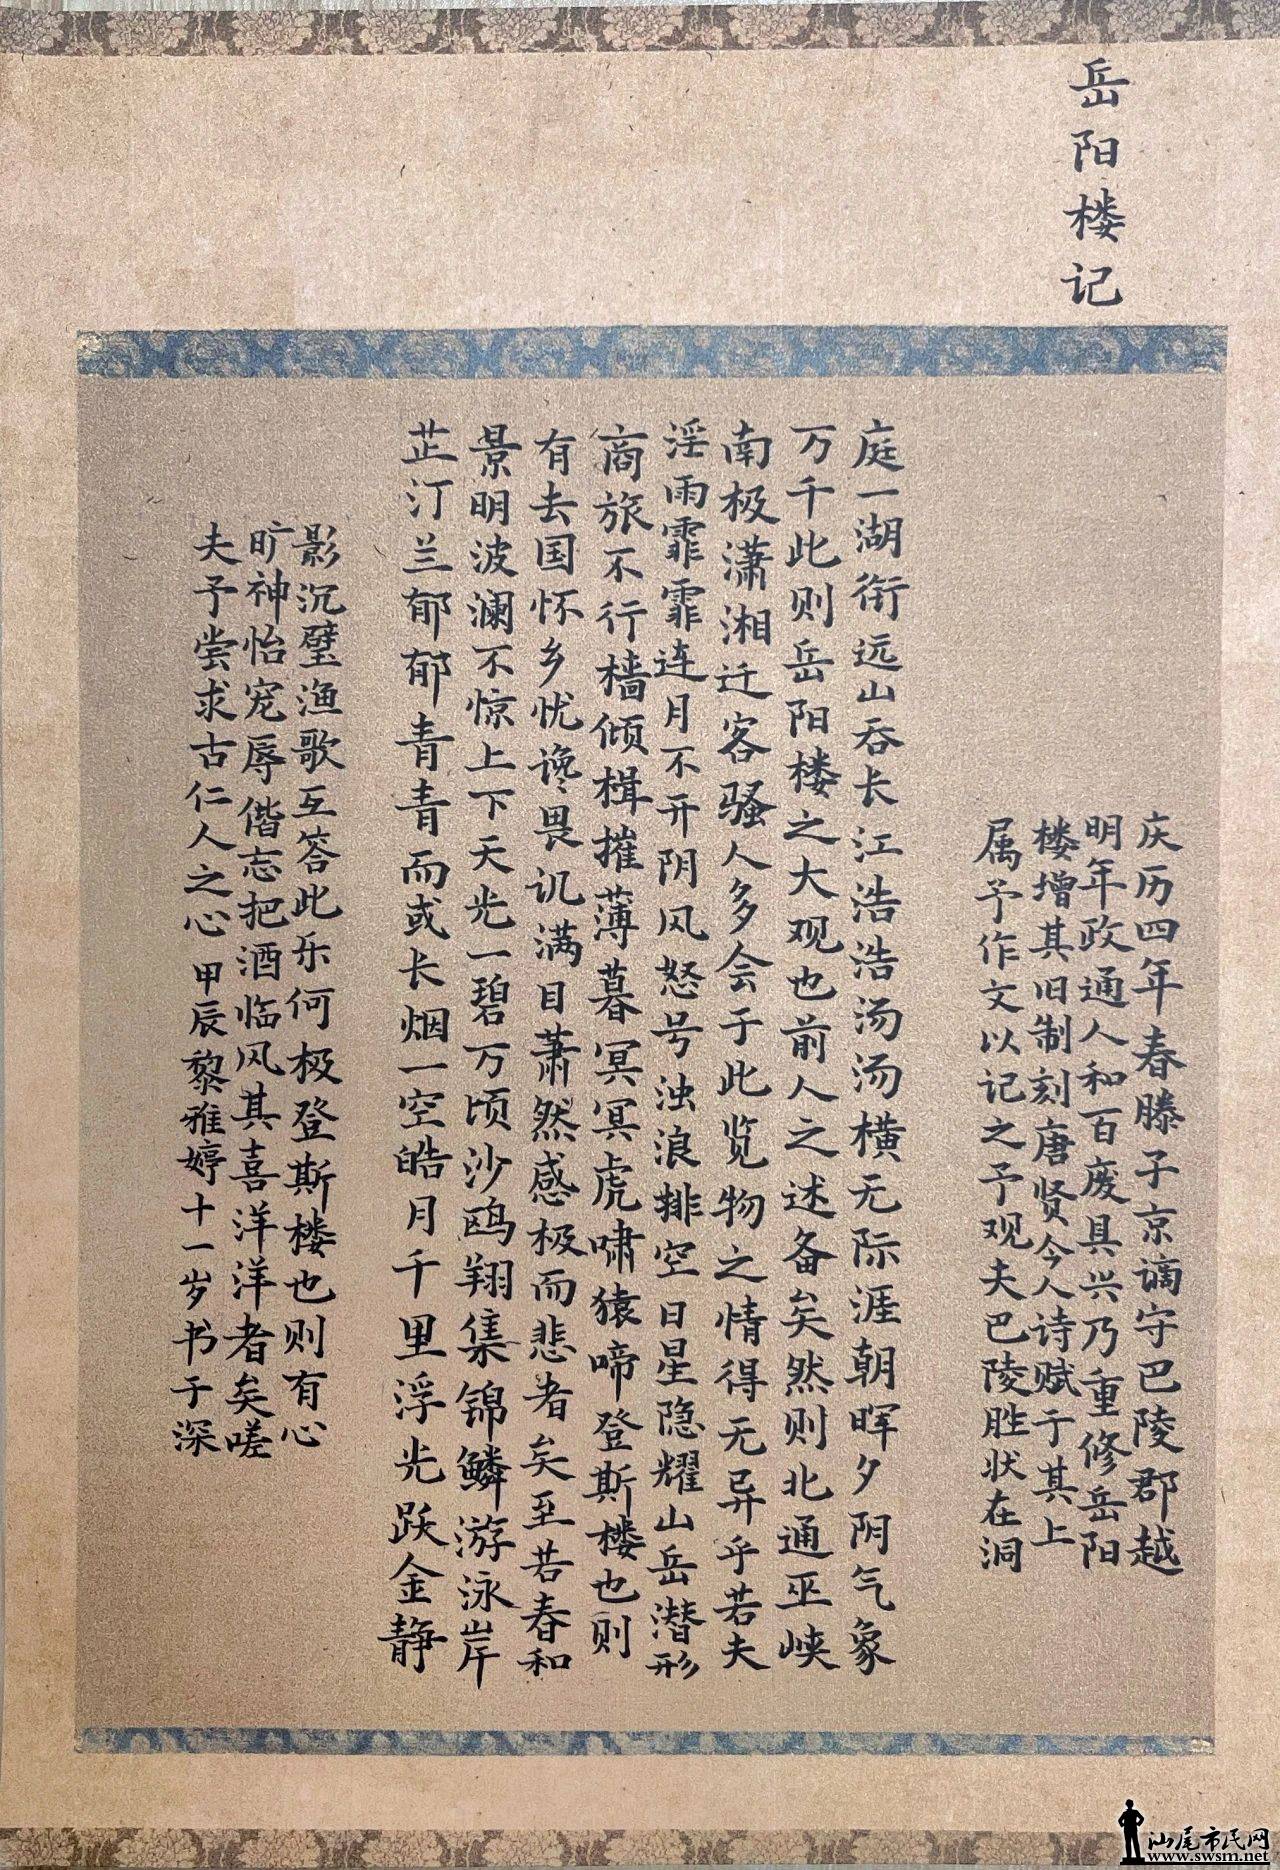 岳阳楼记
庆历四年春滕子京谪守巴陵郡越
明年政通人和百废具兴乃重修岳阳
楼增其旧制刻唐贤今人诗赋于其上
属予作文以记之予观夫巴陵胜状在洞
庭一湖衔远山吞长江浩浩汤汤横无际涯朝晖夕阴气象
万千此则岳阳楼之大观也前人之述备矣然则北通巫峡
南极潇湘迁客骚人多会于此览物之情得无异乎若夫
淫雨霏霏连月不开阴风怒号浊浪排空日星隐耀山岳潜形
商旅不行樯倾楫摧薄暮冥冥虎啸猿啼登斯楼也则
有去国怀乡忧谗畏讥满目萧然感极而悲者矣至若春和
景明波澜不惊上下天光一碧万顷沙鸥翔集锦鳞游泳岸
芷汀兰郁郁青青而或长烟一空皓月千里浮光跃金静
影沉璧渔歌互答此乐何极登斯楼也则有心
旷神怡宠辱偕忘把酒临风其喜洋洋者矣嗟
夫予尝求古仁人之心 甲辰黎雅婷十一岁书于深
汕尾市民网
www.swsm.net